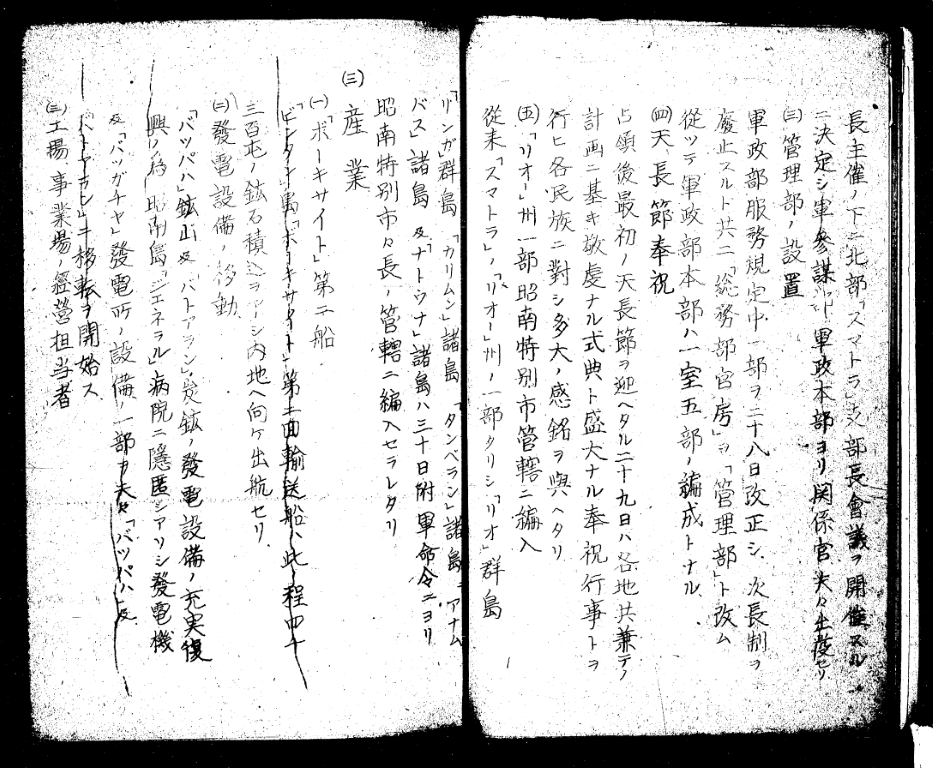 長主催ノ下ニ北部「スマトラ」支部長會議ヲ開催スル
ニ決定シ軍參謀部軍政本部ヨリ関係官夫々出役セリ
㈢管理部ノ設置
軍政部服務規定中一部ヲ二十八日改正シ、次長制ヲ
廢止スルト共ニ「総務部官房」ヲ「管理部」ト改ム
從ツテ軍政部本部ハ一室五部ノ編成トナル
㈣天長節奉祝
占領後最初ノ天長節ヲ迎ヘタル二十九日ハ各地共兼テノ
計画ニ基キ敬虔ナル式典ト盛大ナル奉祝行事トヲ
行ヒ各民族ニ對シ多大ノ感銘ヲ與ヘタリ
㈤「リオー」州一部昭南特別市管轄ニ編入
從来「スマトラ」ノ「リオー」州ノ一部タリシ「リオ」群島
「リンガ」群島「カリムン」諸島「タンベラン」諸島「アナム
バス」諸島及「ナトウナ」諸島ハ三十日附軍命令ニヨリ
昭南特別市々長ノ管轄ニ編入セラレタリ
㈢産業
㈠「ボーキサイト」第二船
「ビンタン」島「ボーキサイト」第二回輸送船ハ此ノ程四千
三百屯ノ鉱石積込ヲナシ内地ヘ向ケ出航セリ
㈡發電設備ノ移動
「バツパハ」鉱山及「バトアラン」炭鉱ノ發電設備ノ充実復
興ノ為昭南島「ジエネラル」病院ニ隱匿シアリシ發電機
及「バツガチヤ」發電所ノ設備ノ一部ヲ夫々「バツパハ」及
「バトアラン」ニ移転ヲ開始ス
㈢工場事業場ノ經營担当者